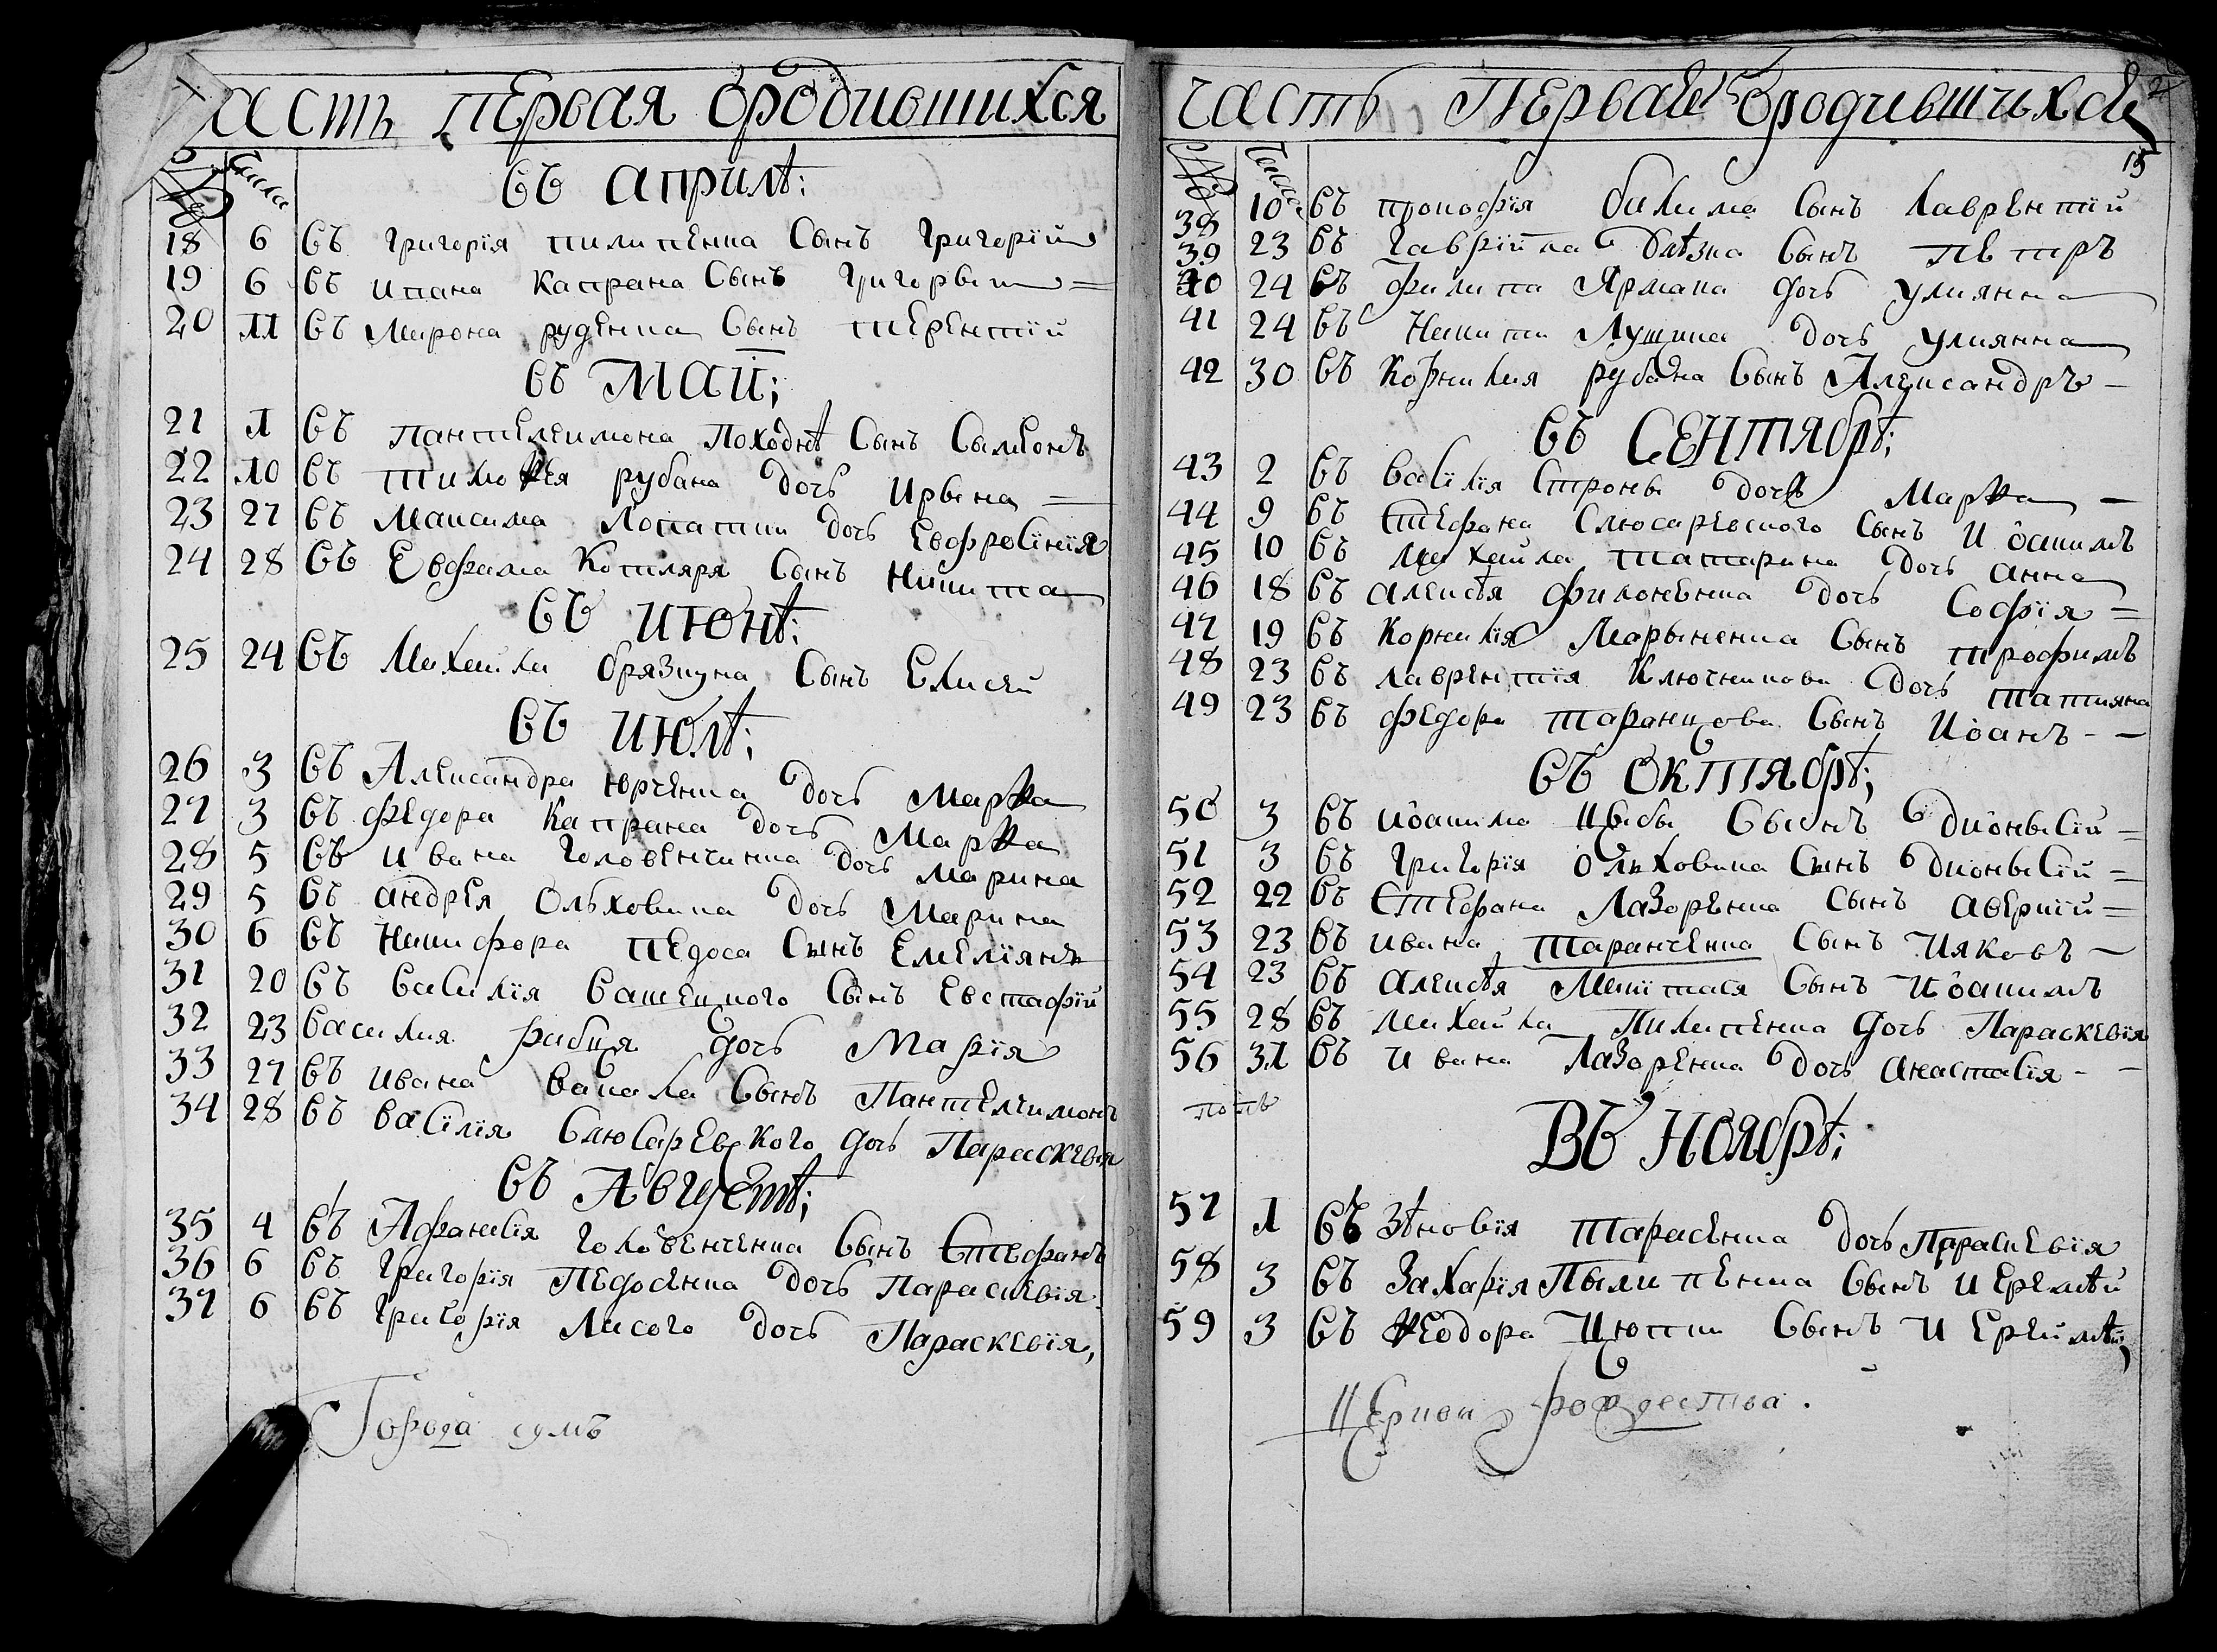 часть первая ѡродившихся
№ Числа
въ априлѣ:
18 6 въ григорїя пилипенка сынъ григорїй
19 6 въ ивана капрана сынъ григорей =
20 11 въ мирона руденка сынъ терентий
въ маїи;
21 1 въ пантелеимона походнѣ сынъ сымеонъ
22 10 въ тимоѳея рубана дочь ирына =
23 27 въ максима лопатки дочь евфросїнїя
24 28 въ евфима котляря сынъ никита
въ июнѣ:
25 24 въ михайла брязкуна сынъ елисей
въ июлѣ;
26 3 въ александра юрченка дочь марѳа
27 3 въ федора капрана дочь марѳа
28 5 въ ивана головенчинка дочь марина
29 5 въ андрея ольховика дочь марина
30 6 въ никифора педоса сынъ емелїянъ
31 20 въ василїя сынъ евстафїй
32 23 василия рибця дочь марїя
33 27 въ ивана вакала сынъ пантелеимонъ
34 28 въ васїлїя слюсаревского дочь параскевїя
въ августѣ;
35 4 въ афанасїя головенченка сынъ стефанъ
36 6 въ григорїя педосенка дочь параскевїя
37 6 въ григорїя лисого дочь параскевїя,
Города сумъ
часть первая ѡродившихся
2
15
№ Числа
38 10 въ прокофїя билима сынъ лаврентий
39 23 въ гаврїила близна сынъ петръ
40 24 въ филипа ярмака дочь улиянна
41 24 въ никити лущика дочь улиянна
42 30 въ корнилия рубана сынъ александръ –
въ сентябрѣ;
43 2 въ васїлїя дочь марѳа –
44 9 въ стефана слюсаревского сынъ иѡакимъ
45 10 въ михайла татарина дочь анна
46 18 въ алексѣя филоненка дочь софїя =
47 19 въ корнилїя марыненка сынъ трофимъ
48 23 въ лаврентїя ключникова дочь татияна
49 23 въ федора таранцова сынъ иѡанъ - –
въ октябрѣ;
50 3 въ иѡакима цыбы сынъ диѡнысїй =
51 3 въ григорїя ольховика сынъ диѡнысїй =
52 22 въ стефана лазоренка сынъ аверкїй =
53 23 въ ивана таранченка сынъ ияковъ –
54 23 въ алексѣя сынъ иѡакимъ
55 28 въ михайла пилипенка дочь параскевїя
56 31 въ ивана лазоренка дочь анастасїя - –
попъ
въ ноябрѣ;
57 1 въ зѣновїя тарасенка дочь параскевїя
58 3 въ захарїя пылипенка сынъ иеремѣй
59 3 въ ѳеодора цюпки сынъ иереймѣй,
Церкви рождества.